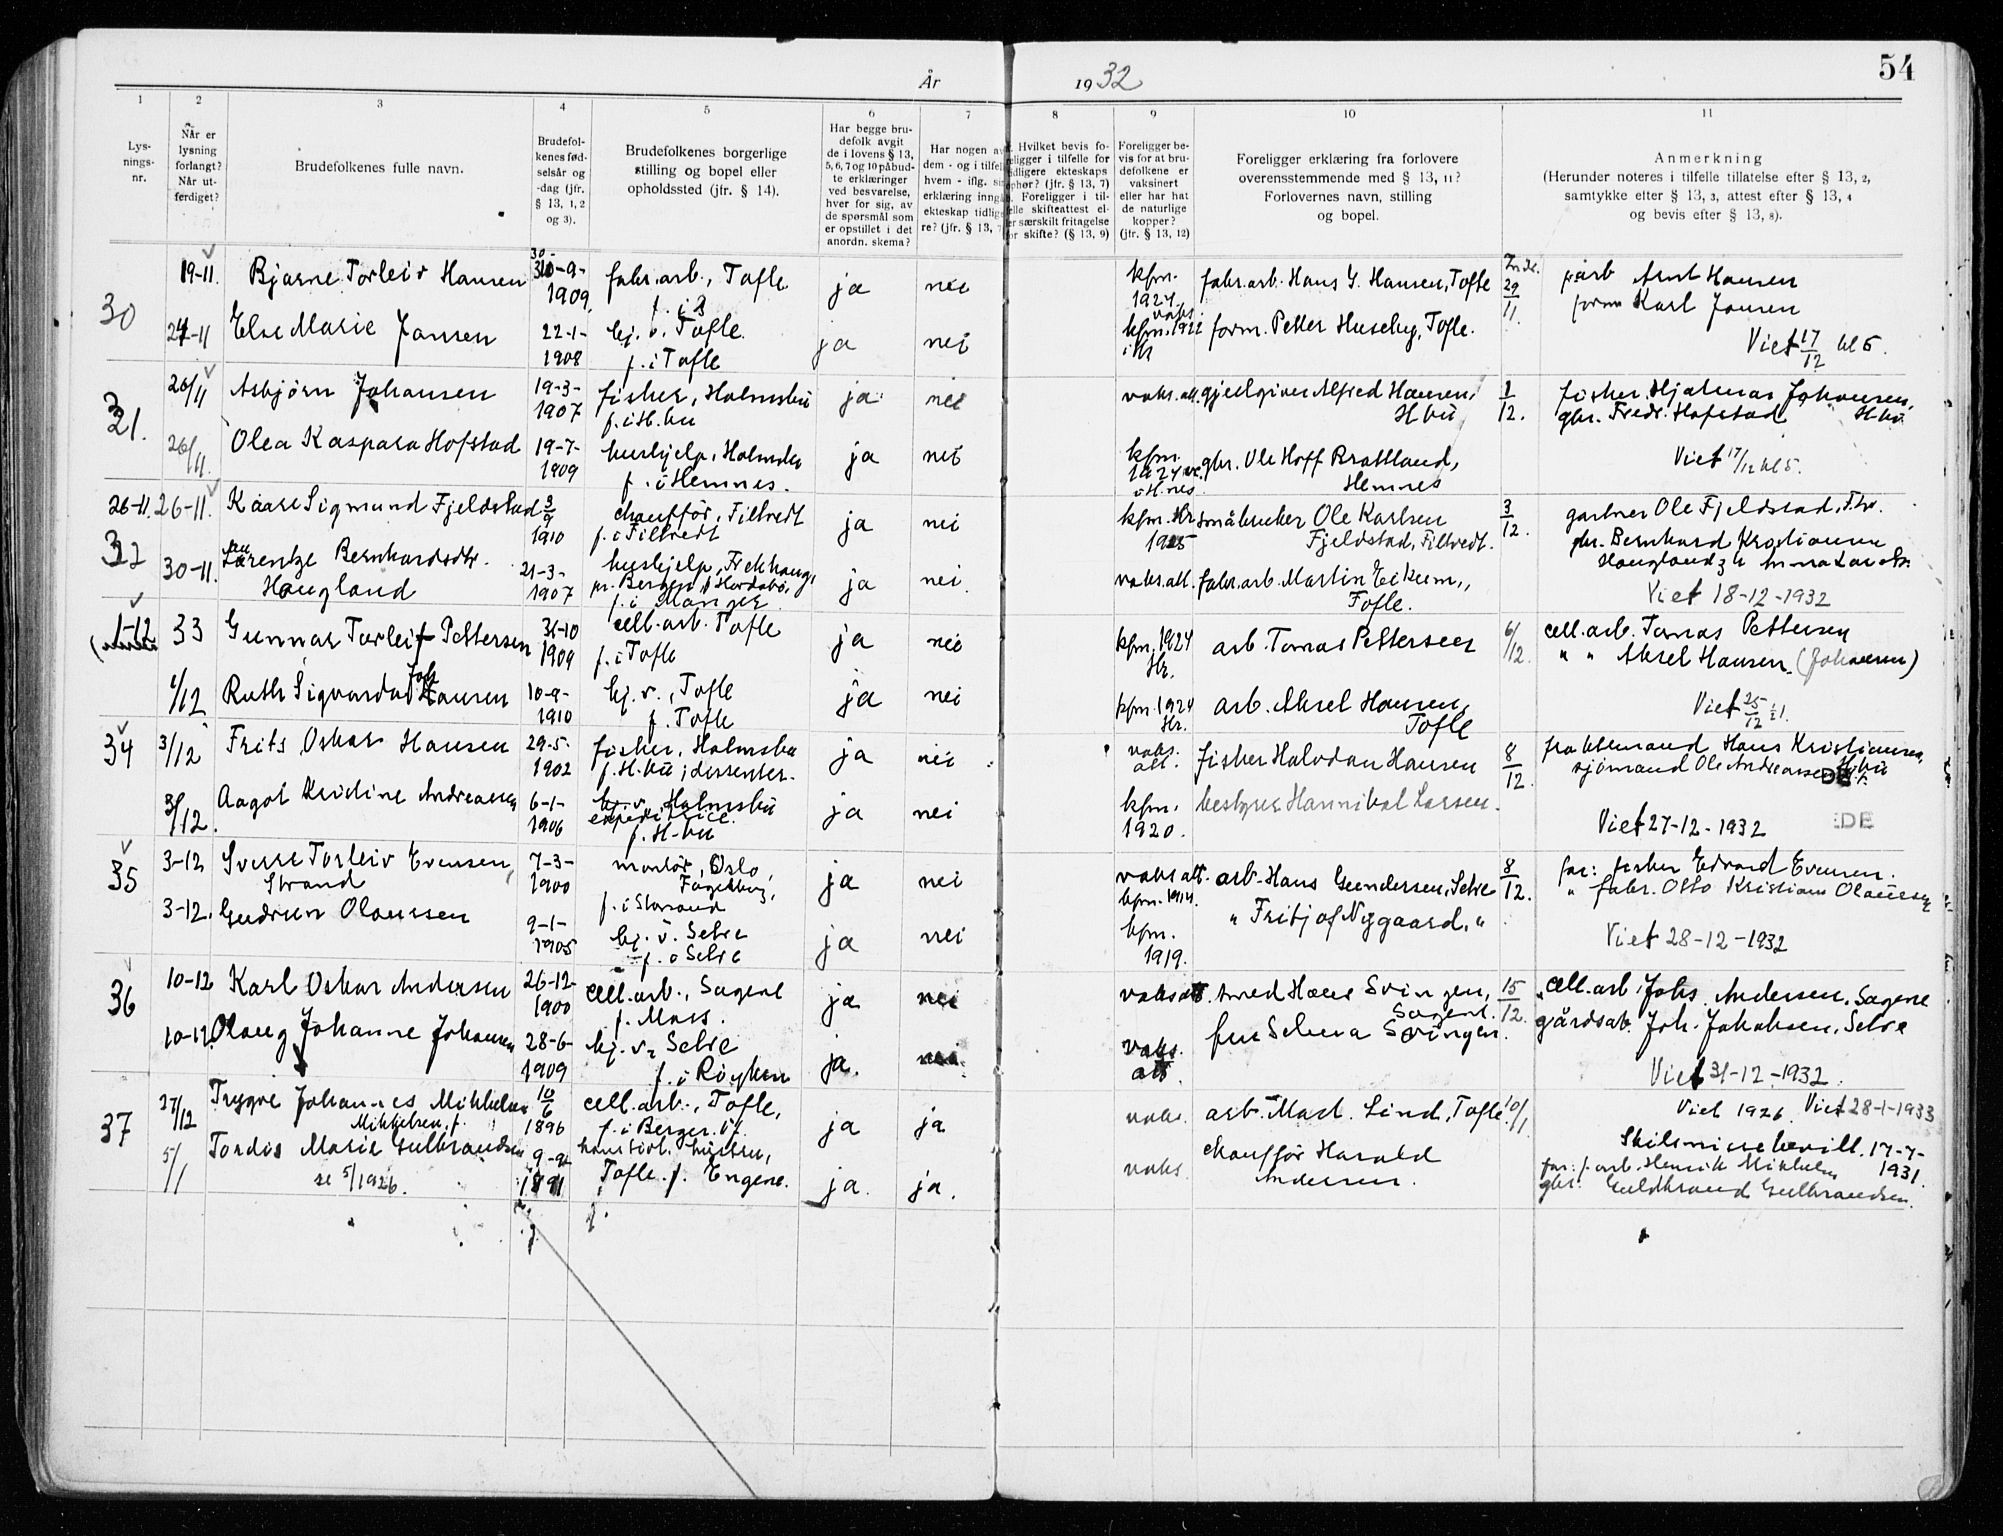 54
År 1932
1 2 3 4 5 6 7 8 9 10 11
Lys-
nings-
nr.
Når er
lysning
forlangt?
Når ut-
ferdiget?
Brudefolkenes fulle navn.
Brudefol-
kenes fød-
selsår og
-dag (jfr.
§ 13, 1, 2
og 3).
Brudefolkenes borgerlige
stilling og bopel eller
opholdssted (jfr. § 14).
Har begge bru-
defolk avgit
de i lovens § 13,
5, 6, 7 og 10 påbud-
te erklæringer
ved besvarelse,
hver for sig, av
de spørsmål som
er opstillet i det
anordn. skema?
Har nogen av
dem - og i tilfel
hvem - iflg. sin
erklæring inngå
ekteskap tidlige
re? (jfr. § 13, 7
Hvilket bevis fo-
religger i tilfelle for
tidligere ekteskaps
ophør? (jfr. § 13, 7)
Foreligger i til-
felle skifteattest el-
ler særskilt fritagelse
for skifte? (§ 13, 9)
Foreligger be-
vis for at bru-
defolkene er
vaksinert
eller har hat
de naturlige
kopper?
(jfr. § 13, 12)
Foreligger erklæring fra forlovere
overensstemmende med § 13, 11?
Forlovernes navn, stilling
og bopel.
Anmerkning
(Herunder noteres i tilfelle tillatelse efter § 13, 2,
samtykke efter § 13, 3, attest efter § 13, 4
og bevis efter § 13, 8).
30 19-11. Bjarne Torleiv Hansen 30-9-1909 fabr.arb., Tofte ja nei kfm. 1924 fabr.arb. Hans G. Hansen, Tofte 29/11. arb Arnt Hansen
24-11 Else Marie Jansen 22-1-1908 hj. v. Tofte. f. i Tofte ja nei kfm. 1922 form. Petter Huseby, Tofte. form Karl Jansen
Viet 17/12 kl 5.
31. 26/11 Asbjørn Johansen 19-3-1907 fisker, Holmsbu f. i H.bu ja nei vaks. att. gjestgiver Alfred Hansen, H.bu 1/12. fisker Hjalmar Johansen, H.bu
26/11. Olea Kaspara Hofstad 19-7-1909 hushjelp, Holmsbu f. i Hemnes. ja nei kfm. 1924 i H.nes gbr. Ole Hoff Brattland, Hemnes gbr. Fredr. Hofstad
Viet 17/12 kl 5.
32 26-11. 26-11. Kaare Sigmund Fjeldstad 3/9 1910 chauffør, Filtvedt f. i Filtvedt ja nei kfm. Hr 1925 småbruker Ole Karlsen Fjeldstad, Filtvedt. 3/12. gartner Ole Fjeldstad,
30-11. Laurentze Bernhardsdtr. Haugland 21-3-1907 hushjelp, Frekhaug, pr. Bergen, Hordabø, f. i Manger ja nei vaks. att. fabr. arb. Martin Eikum, Tofte. gbr. Bernhard Kristiansen Haugland
Viet 18-12-1932
33 1-12 Gunnar Torleif Pettersen 31-10 1909 cell. arb. Tofte f. i Tofte ja nei kfm. 1924 Hr. arb. Tomas Pettersen 6/12. cell. arb. Tomas Pettersen
1/12 Ruth Sigvarda Joh Hansen 10-9-1910 hj. v., Tofte f. Tofte ja nei kfm. 1924 Hr. arb. Aksel Hansen, Tofte " " Aksel Hansen (Johansen)
Viet 25/12
34 3/12 Frits Oskar Hansen 29-5-1902 fisker, Holmsbu f. H.bu, dissenter. ja nei vaks. att. fisker Halvdan Hansen 8/12. Hans Kristiansen, H.bu
3/12. Aagot Kristine Andreassen 6-1-1906 hj. v. Holmsbu expeditrice. f. H-bu ja nei kfm. 1920. bestyrer Hannibal Larsen. sjømand Ole Andreassen
Viet 27-12-1932 DE
35 3-12 Sverre Torleiv Evensen, Strand 7-3-1900 montør, Oslo, Fagerborg, ja nei vaks att. kfm. 1914. arb. Hans Gundersen, Sætre 8/12. far: fisker Edvard Evensen.
3-12. Gudrun Olaussen 9-1-1905 hj. v. Sætre f. i Sætre ja nei kfm. 1919. " Fritjof Nygaard, " " fabr. Otto Kristian Olaussen
Viet 28-12-1932
36 10-12 Karl Oskar Andersen 26-12-1900 cell. arb., Sagene f. Moss. ja nei vaks att. Hans Svingen, Sagene. 15/12. cell. arb. Johs. Andersen, Sagene
10-12. Olaug Johanne Johansen 28-6-1909 hj. v. Sætre f. i Røyken ja. nei vaks. att. fru Selma Svingen. gårdsarb. Joh. Jakobsen, Sætre
Viet 31-12-1932.
37 27/12 Trygve Johannes Mikkelsen 10/6 1896 cell. arb., Tofte, f. i Berger. ja ja vaks. arb. Mart. Lind, Tofte 10/1. Viet 1926 Viet 28-1-1933
Mikkelsen, f.
5/1 Tordis Marie Gulbrandsen 9-9-1891 hustru, Tofte. f. Engene. ja. ja. vaks. chauffør Harald Andersen. Skilsmissebevill. 17-7-1931.
se 5/1926.
far: f. arb. Henrik Mikkelsen
gbr. Guldbrand Gulbrandsen.